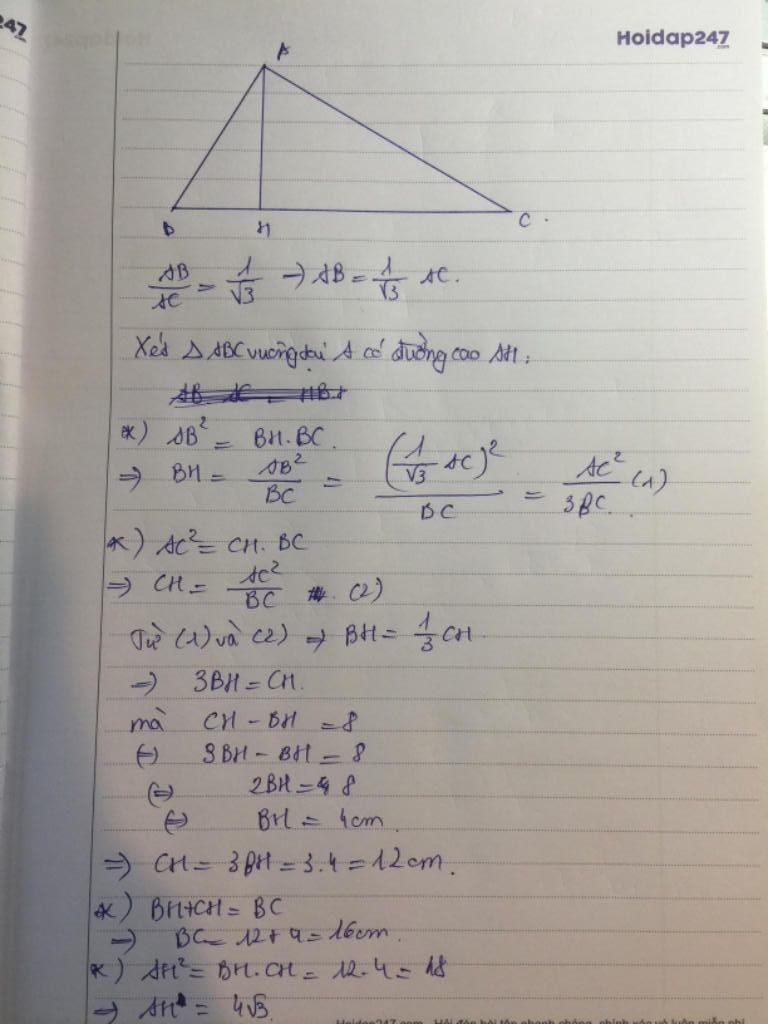 247
Hoidap247
.com
A
B H C.
AB/AC = 1/√3 → AB = 1/√3 AC.
Xét Δ ABC vuông tại A có đường cao AH:
*) AB² = BH.BC.
⇒ BH = AB²/BC = (1/√3 AC)²/BC = AC²/3BC (1)
*) AC² = CH.BC
⇒ CH = AC²/BC (2)
Từ (1) và (2) ⇒ BH = 1/3 CH.
⇒ 3BH = CH.
mà CH - BH = 8
(=) 3BH - BH = 8
(=) 2BH = 8
(=) BH = 4cm.
⇒ CH = 3BH = 3.4 = 12cm.
*) BH+CH = BC
⇒ BC = 12+4 = 16cm.
*) AH² = BH.CH = 12.4 = 18
⇒ AH = 4√3.
Hoidap247.com - Hỏi đáp bài tập nhanh chóng, chính xác và luôn miễn phí